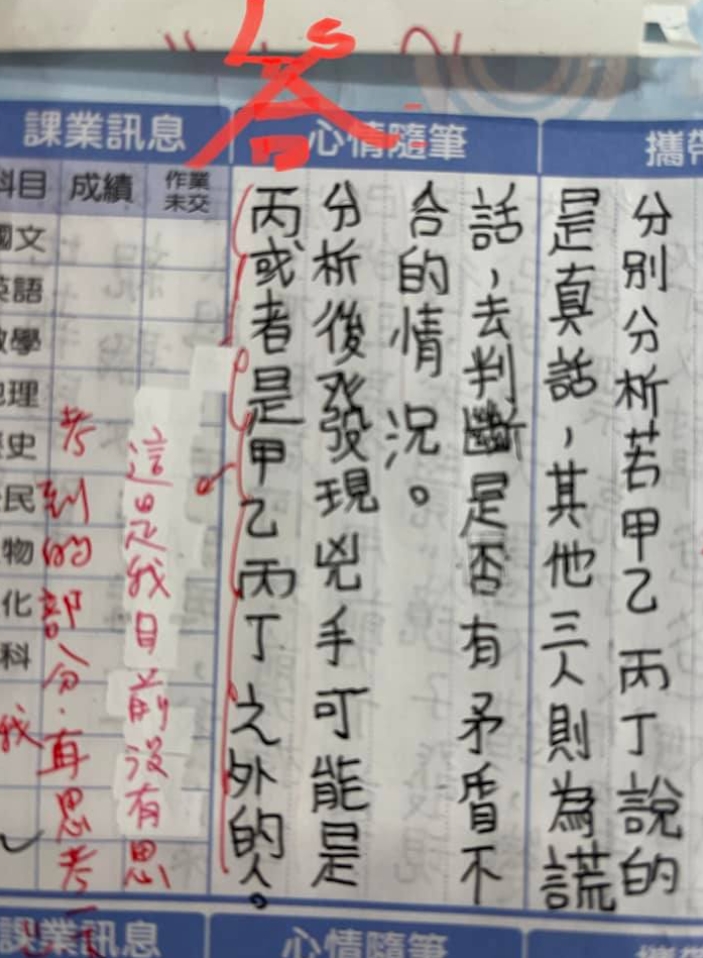 答
課業訊息
心情隨筆
攜帶
科目
成績
作業
未交
國文
英語
數學
地理
歷史
公民
生物
理化
分別分析若甲乙丙丁說的
是真話,其他三人則為謊
話,去判斷是否有矛盾不
合的情況。
分析後發現兇手可能是
丙或者是甲乙丙丁之外的人。
這是我目前沒有思
考到的部分.再思考一下
我
課業訊息
心情隨筆
攜帶